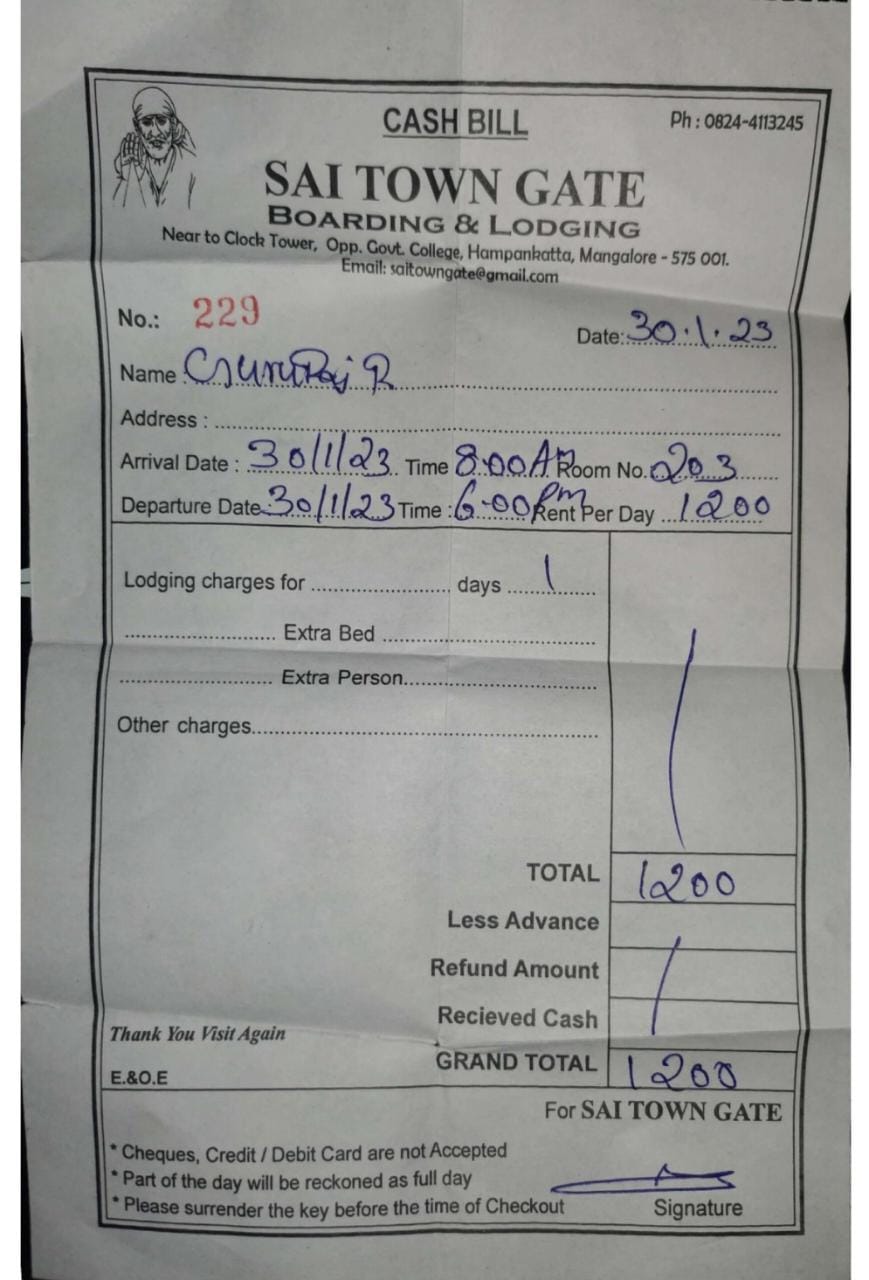 CASH BILL
Ph : 0824-4113245
SAI TOWN GATE
BOARDING & LODGING
Near to Clock Tower, Opp. Govt. College, Hampankatta, Mangalore - 575 001.
Email: saitowngate@gmail.com
No.: 229
Date: 30.1.23
Name R
Address :
Arrival Date : 30/1/23 Time 8:00 AM Room No. 203
Departure Date 30/1/23 Time : 6:00 Pm Rent Per Day 1200
Lodging charges for days 1
Extra Bed
Extra Person
Other charges
TOTAL 1200
Less Advance
Refund Amount
Recieved Cash
Thank You Visit Again
GRAND TOTAL 1200
E.&O.E
For SAI TOWN GATE
* Cheques, Credit / Debit Card are not Accepted
* Part of the day will be reckoned as full day
* Please surrender the key before the time of Checkout
Signature